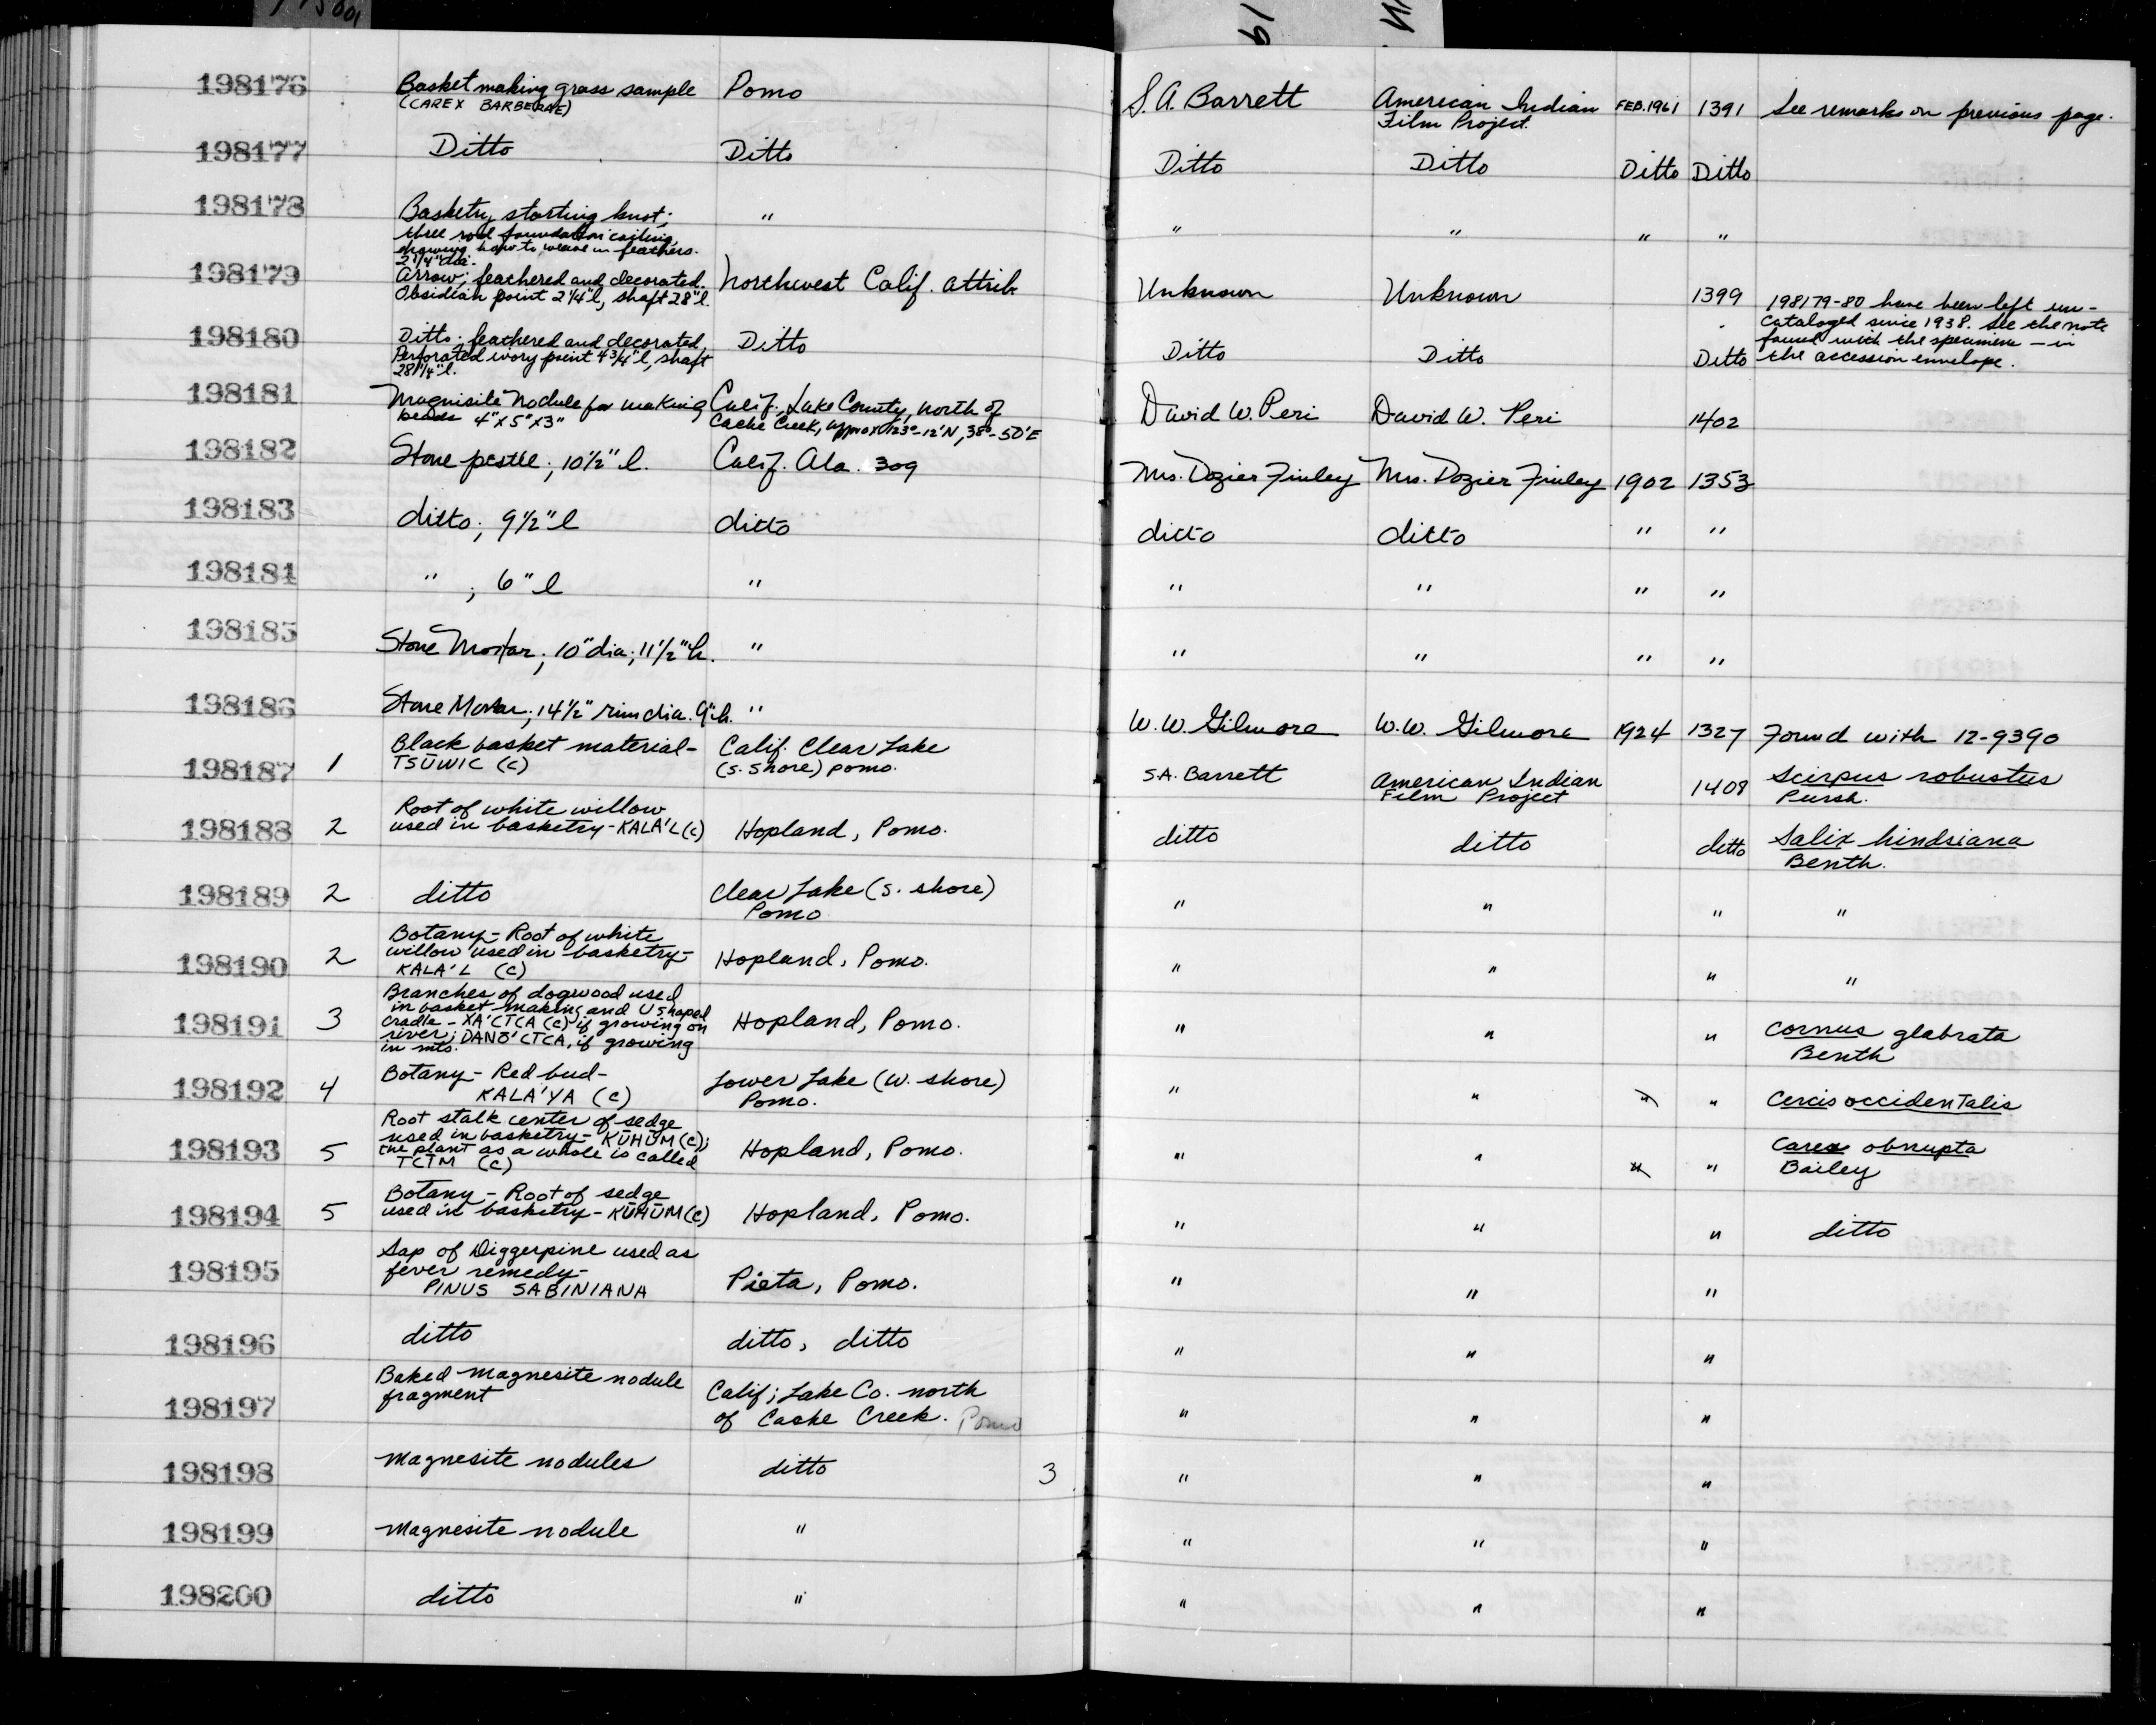 198176 Basket making grass sample Pomo S. A. Barrett American Indian FEB. 1961 1391 See remarks on previous page.
(CAREX BARBERAE) Film Project.
198177 Ditto Ditto Ditto Ditto Ditto Ditto
198178 Basketry, starting knot; " " " " "
three rod foundation coiling,
showing how to weave in feathers.
2 1/4" dia.
198179 Arrow; feathered and decorated. Northwest Calif. attrib Unknown Unknown 1399 198179-80 have been left un-
Obsidian point 2 1/4" l, shaft 28" l. cataloged since 1938. See the note
198180 Ditto; feathered and decorated, Ditto Ditto Ditto Ditto found with the specimens — in
Perforated ivory point 4 3/4" l, shaft the accession envelope.
28 1/4" l.
198181 Magnisite Nodule for making Calif., Lake County, north of David W. Peri David W. Peri 1402
beads 4" x 5" x 3" Cache Creek, approx 123°-12'N, 38°-50'E
198182 Stone pestle; 10 1/2" l. Calif. Ala. 309 Mrs. Dozier Finley Mrs. Dozier Finley 1902 1353
198183 ditto; 9 1/2" l ditto ditto ditto " "
198184 " ; 6" l " " " " "
198185 Stone Mortar; 10" dia; 11 1/2" h. " " " " "
198186 Stone Mortar; 14 1/2" rim dia. 9" h. " W. W. Gilmore W. W. Gilmore 1924 1327 Found with 12-9390
198187 1 Black basket material- Calif. Clear Lake S.A. Barrett American Indian 1408 Scirpus robustus
TSŪWIC (c) (S. Shore) Pomo. Film Project Pursh.
198188 2 Root of white willow Hopland, Pomo. ditto ditto ditto Salix hindsiana
used in basketry - KALA'L (c) Benth.
198189 2 ditto Clear Lake (S. shore) " " " "
Pomo
198190 2 Botany - Root of white Hopland, Pomo. " " " "
willow used in basketry-
KALA'L (c)
198191 3 Branches of dogwood used Hopland, Pomo. " " " Cornus glabrata
in basket making and U shaped Benth
cradle - XA'CTCA (c) if growing on
river; DANŌ'CTCA, if growing
in mts.
198192 4 Botany - Red bud- Lower Lake (W. shore) " " " " Cercis occidentalis
KALA'YA (c) Pomo.
198193 5 Root stalk center of sedge Hopland, Pomo. " " " " Carex obnupta
used in basketry - KŪHŪM (c); Bailey
the plant as a whole is called
TCTM (c)
198194 5 Botany - Root of sedge Hopland, Pomo. " " " ditto
used in basketry - KŪHŪM (c)
198195 Sap of Diggerpine used as Pieta, Pomo. " " "
fever remedy-
PINUS SABINIANA
198196 ditto ditto, ditto " " "
198197 Baked magnesite nodule Calif; Lake Co. north " " "
fragment of Cache Creek. Pomo
198198 Magnesite nodules ditto 3 " " "
198199 Magnesite nodule " " " "
198200 ditto " " " "